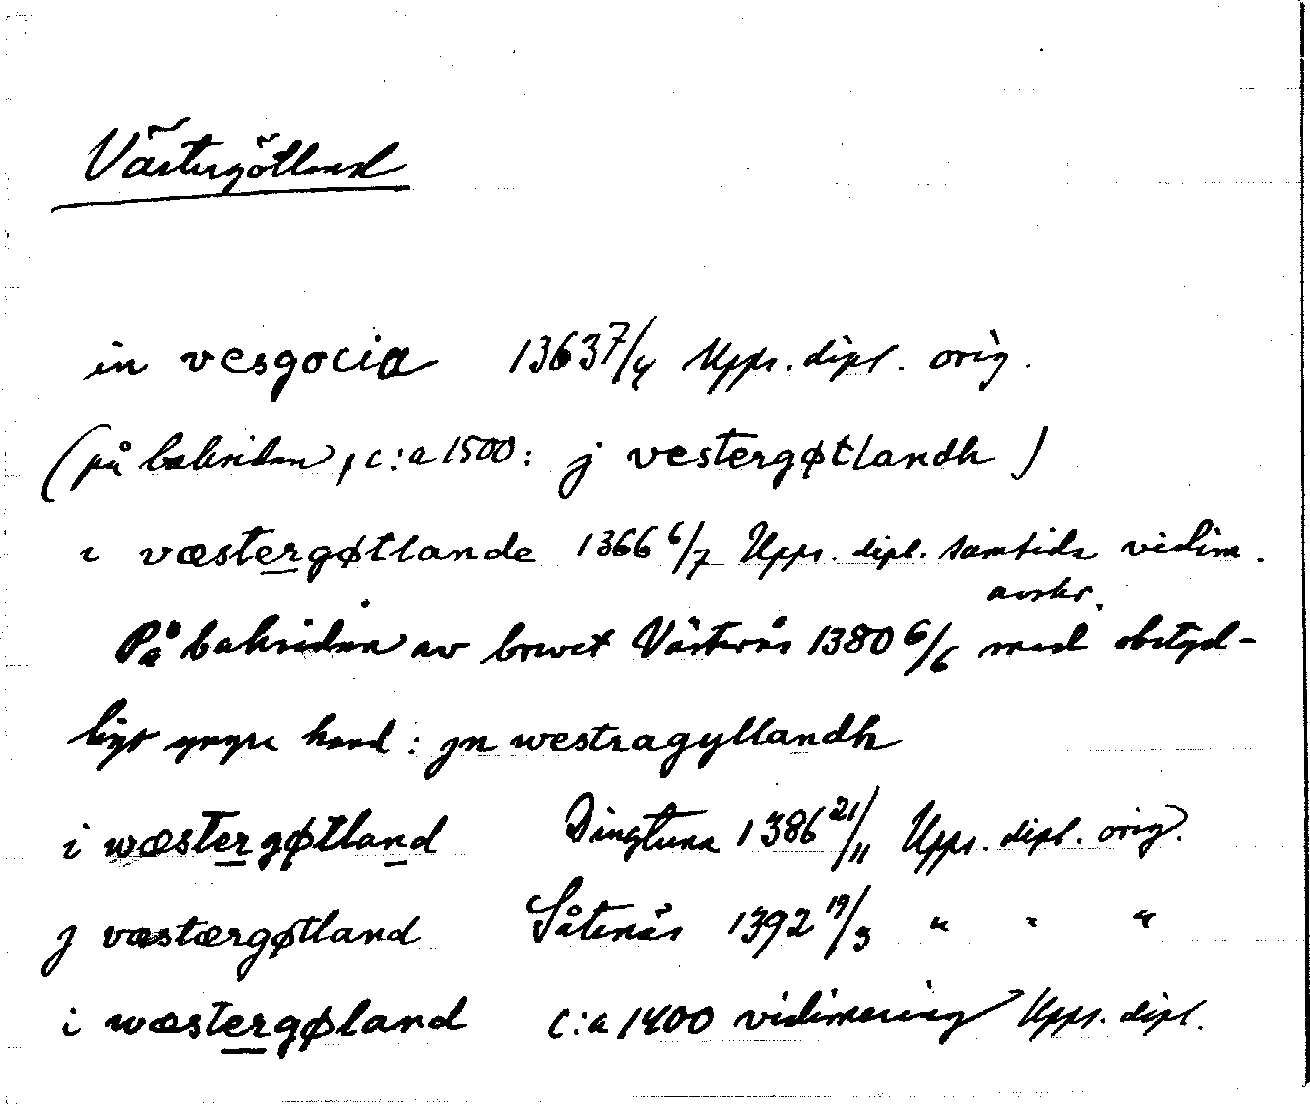 Västergötland
in vesgocia 1363 7/4 Upps. dipl. orig.
(på baksidan, c:a 1500: j vestergøtlandh)
i væstergøtlande 1366 6/7 Upps. dipl. samtida vidim.
avskr.
På baksidan av brevet Västerås 1380 6/6 med obetyd-
ligt yngre hand: jn westragyllandh
i wæstergøtland Dingtuna 1386 21/11 Upps. dipl. orig.
j væstærgøtland Såtenäs 1392 19/3 " " "
i wæstergøland c:a 1400 vidimering Upps. dipl.